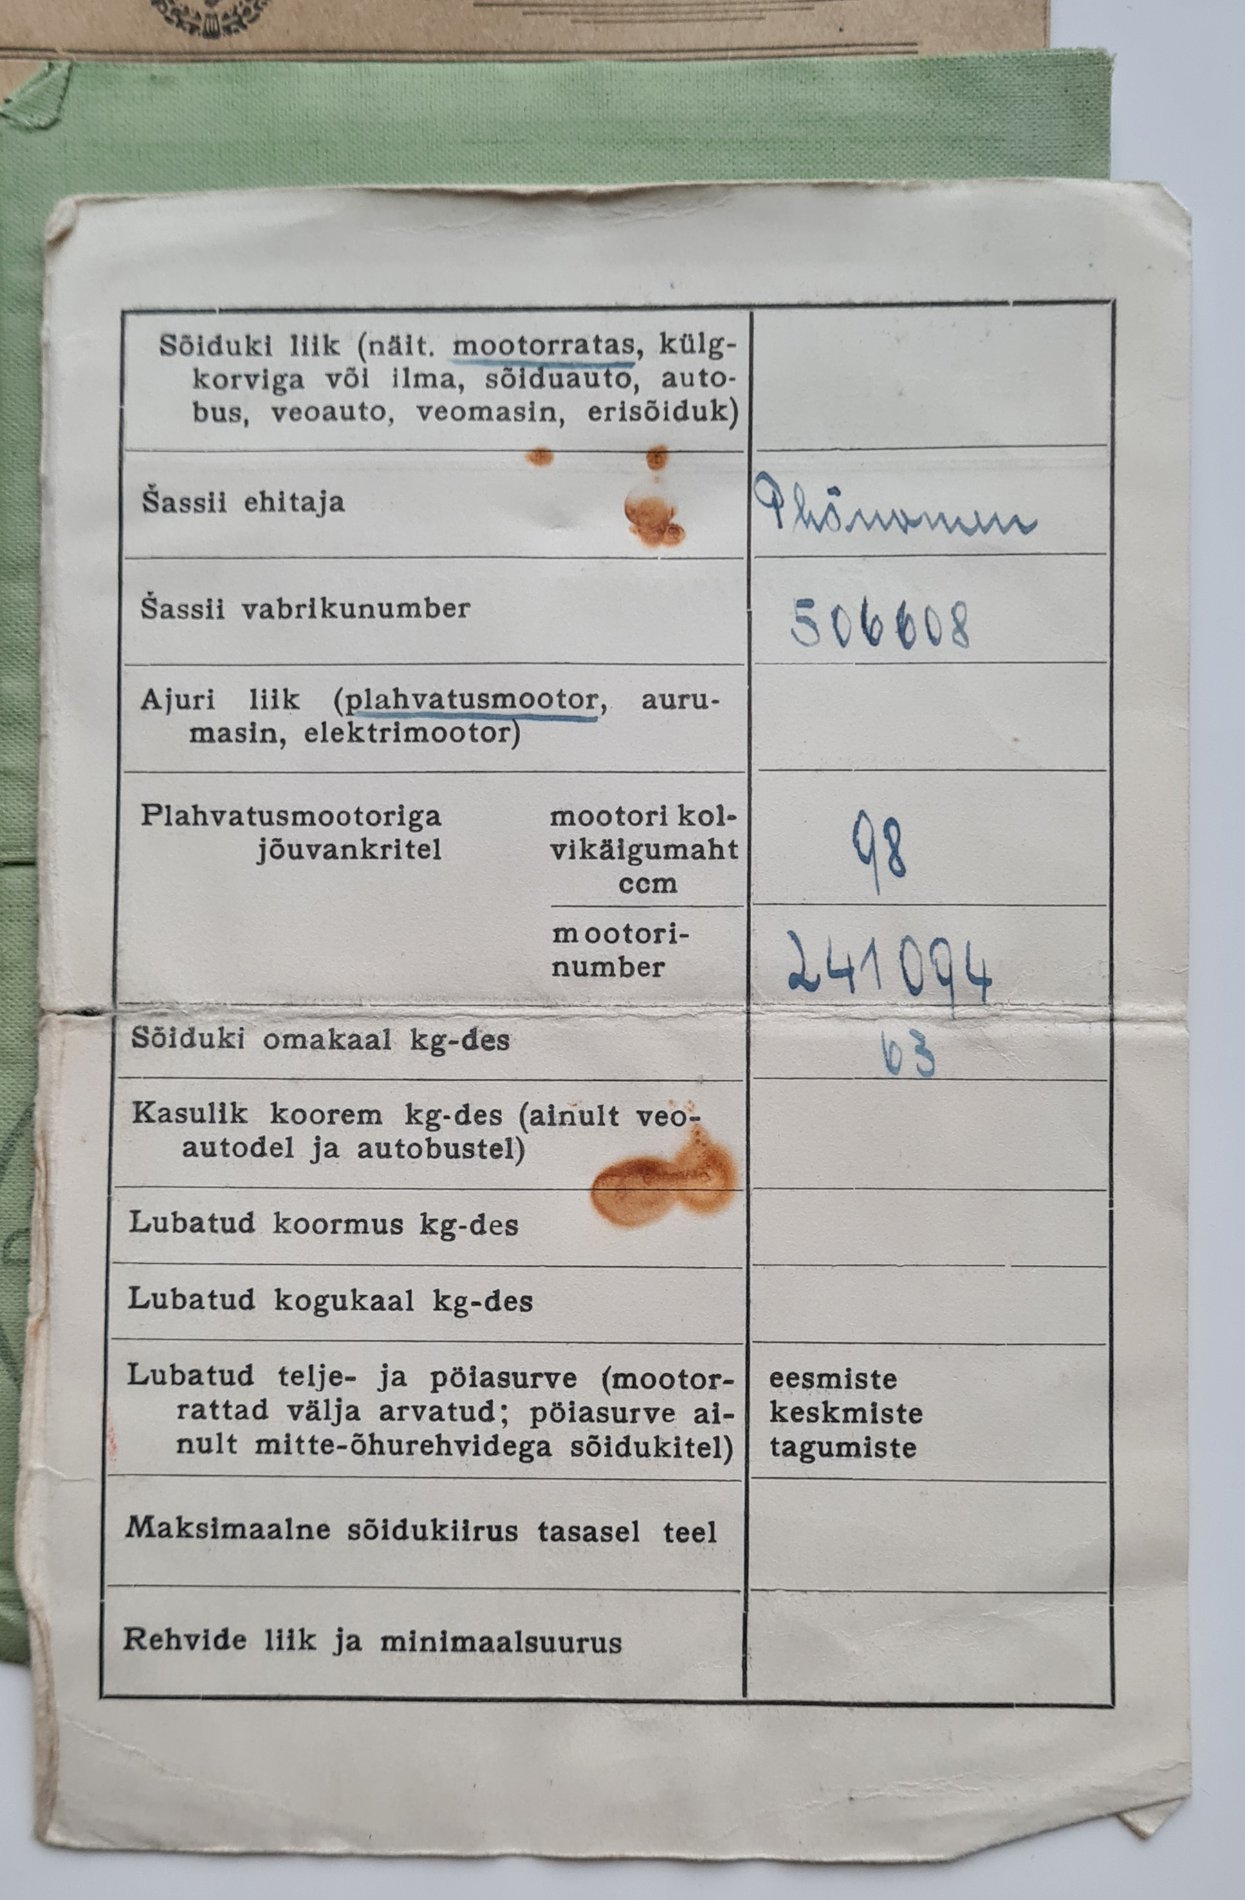 Sõiduki liik (näit. mootorratas, külg-
korviga või ilma, sõiduauto, auto-
bus, veoauto, veomasin, erisõiduk)
Šassii ehitaja
Phönomen
Šassii vabrikunumber
506608
Ajuri liik (plahvatusmootor, auru-
masin, elektrimootor)
Plahvatusmootoriga
jõuvankritel
mootori kol-
vikäigumaht
ccm
98
mootori-
number
241094
Sõiduki omakaal kg-des
63
Kasulik koorem kg-des (ainult veo-
autodel ja autobustel)
Lubatud koormus kg-des
Lubatud kogukaal kg-des
Lubatud telje- ja pöiasurve (mootor-
rattad välja arvatud; pöiasurve ai-
nult mitte-õhurehvidega sõidukitel)
eesmiste
keskmiste
tagumiste
Maksimaalne sõidukiirus tasasel teel
Rehvide liik ja minimaalsuurus